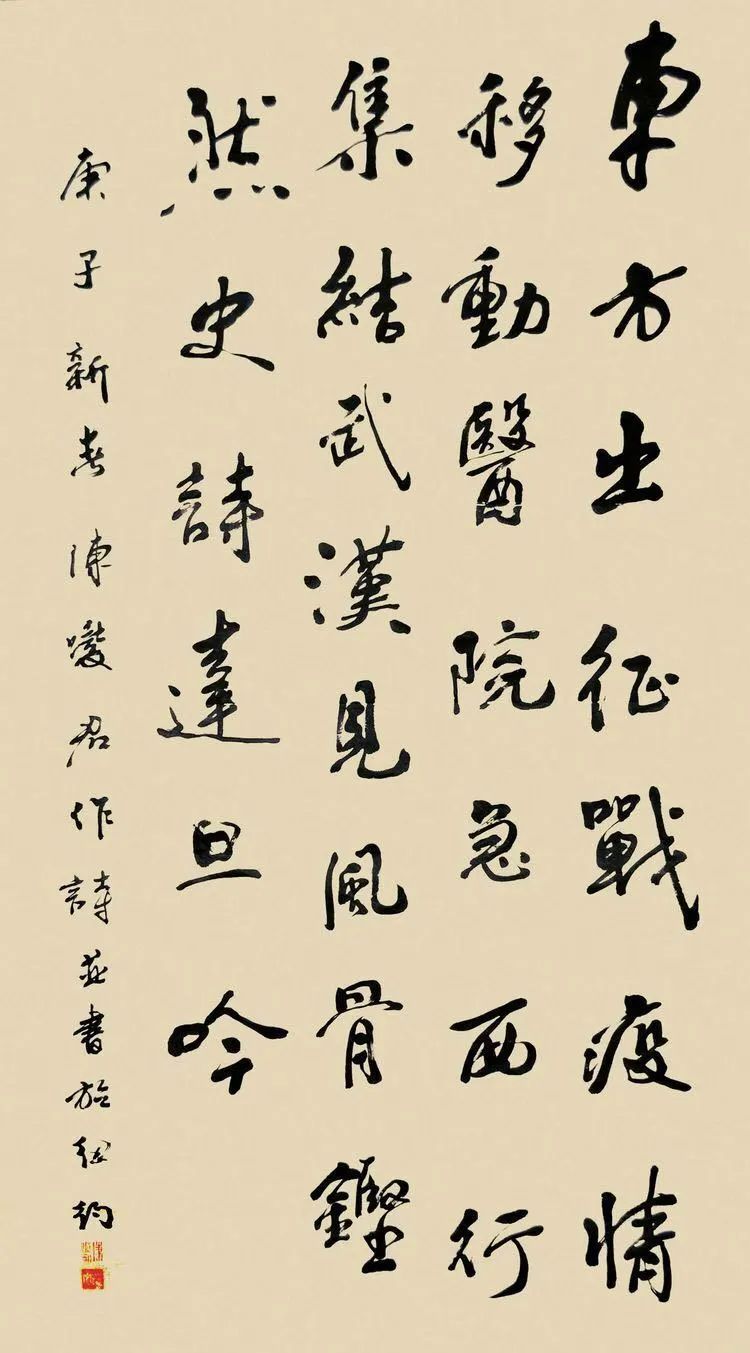 東方出征戰疫情
移動醫院急西行
集結武漢見風骨鏗
然史詩達旦吟
庚子新春陳噯君作詩並書於紐約